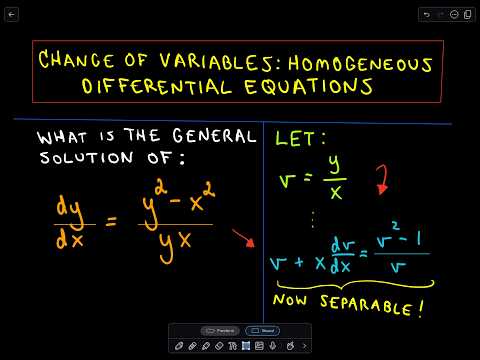 CHANGE OF VARIABLES: HOMOGENEOUS
DIFFERENTIAL EQUATIONS
WHAT IS THE GENERAL
SOLUTION OF:
dy/dx = (y² - x²)/(yx)
LET:
v = y/x
⋮
v + x dv/dx = (v² - 1)/v
NOW SEPARABLE!